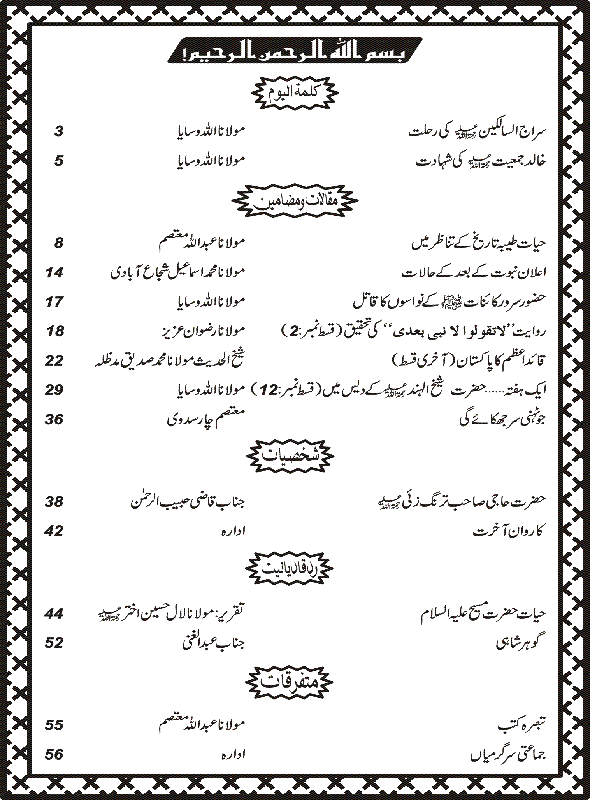 بسم الله الرحمن الرحيم!
کلمة الیوم
سراج السالکین رحمۃ اللہ علیہ کی رحلت مولانا اللہ وسایا 3
خالد جمعیت رحمۃ اللہ علیہ کی شہادت مولانا اللہ وسایا 5
مقالات و مضامین
حیات طیبہ تاریخ کے تناظر میں مولانا عبداللہ معتصم 8
اعلان نبوت کے بعد کے حالات مولانا محمد اسماعیل شجاع آبادی 14
حضور سرور کائنات ﷺ کے نواسوں کا قاتل مولانا اللہ وسایا 17
روایت ”لا تقولوا لا نبی بعدی“ کی تحقیق (قسط نمبر:2) مولانا رضوان عزیز 18
قائد اعظم کا پاکستان (آخری قسط) شیخ الحدیث مولانا محمد صدیق مدظلہ 22
ایک ہفتہ...... حضرت شیخ الہند رحمۃ اللہ علیہ کے دیس میں (قسط نمبر:12) مولانا اللہ وسایا 29
جونہی سر جھکائے گی معتصم چارسدوی 36
شخصیات
حضرت حاجی صاحب ترنگ زئی رحمۃ اللہ علیہ جناب قاضی حبیب الرحمٰن 38
کاروان آخرت ادارہ 42
رد قادیانیت
حیات حضرت مسیح علیہ السلام تقریر: مولانا لال حسین اختر رحمۃ اللہ علیہ 44
گوہر شاہی جناب عبدالغنی 52
متفرقات
تبصرہ کتب مولانا عبداللہ معتصم 55
جماعتی سرگرمیاں ادارہ 56